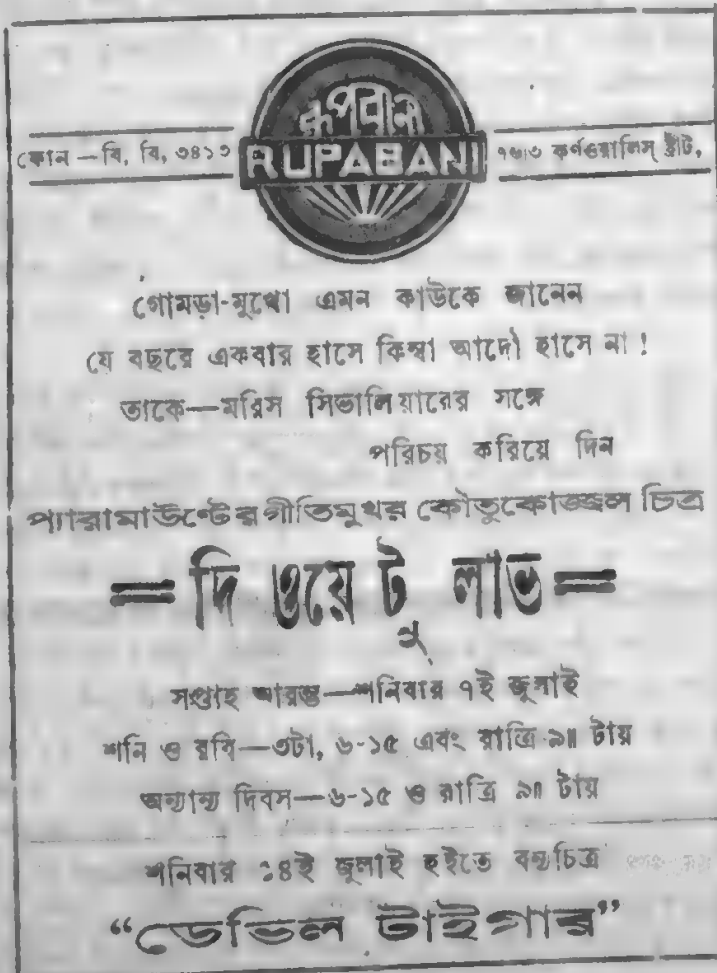 রূপবাণী
ফোন — বি, বি, ৩৪১৩
RUPABANI
৭৬৷৩ কর্ণওয়ালিস্ ষ্ট্রীট,
গোমড়া-মুখো এমন কাউকে জানেন
যে বছরে একবার হাসে কিম্বা আদৌ হাসে না !
তাকে—মরিস সিভালিয়ারের সঙ্গে
পরিচয় করিয়ে দিন
প্যারামাউণ্টের গীতিমুখর কৌতুকোজ্জ্বল চিত্র
= দি ওয়ে টু লাভ =
সপ্তাহ আরম্ভ—শনিবার ৭ই জুলাই
শনি ও রবি—৩টা, ৬-১৫ এবং রাত্রি ৯॥ টায়
অন্যান্য দিবস—৬-১৫ ও রাত্রি ৯॥ টায়
শনিবার ১৪ই জুলাই হইতে বন্যচিত্র
“ডেভিল টাইগার”